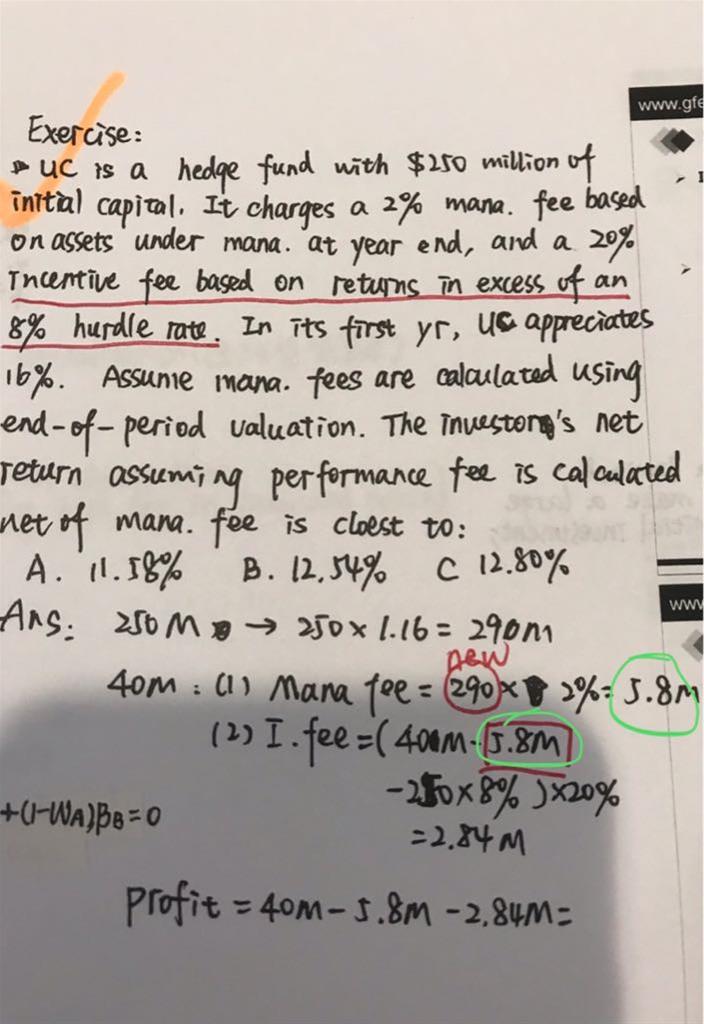 www.gfe
Exercise:
UC is a hedge fund with $250 million of
initial capital. It charges a 2% mana. fee based
on assets under mana. at year end, and a 20%
Incentive fee based on returns in excess of an
8% hurdle rate. In its first yr, UC appreciates
16%. Assume mana. fees are calculated using
end-of-period valuation. The investor's net
return assuming performance fee is calculated
net of mana. fee is closest to:
A. 11.58% B. 12.54% C 12.80%
www
Ans: 250M → 250 x 1.16 = 290m
new
40M: (1) Mana fee = 290 x 2% = 5.8M
(2) I. fee = (40M - 5.8M
- 250 x 8%) x 20%
+(1-WA)βB=0
= 2.84 M
Profit = 40M - 5.8M - 2.84M =